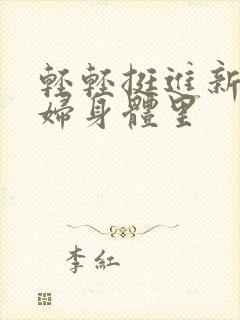 輕輕挺進新
婦身體里
李紅